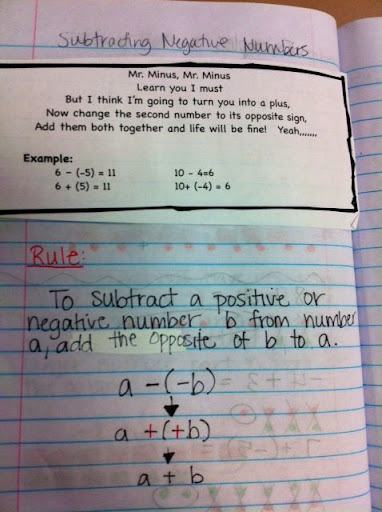 Subtracting Negative Numbers
Mr. Minus, Mr. Minus
Learn you I must
But I think I'm going to turn you into a plus,
Now change the second number to its opposite sign,
Add them both together and life will be fine!   Yeah,,,,,,,
Example:
6 - (-5) = 11    10 - 4=6
6 + (5) = 11    10+ (-4) = 6
Rule:
To subtract a positive or
negative number b from number
a, add the opposite of b to a.
a -(-b)
a +(+b)
a + b